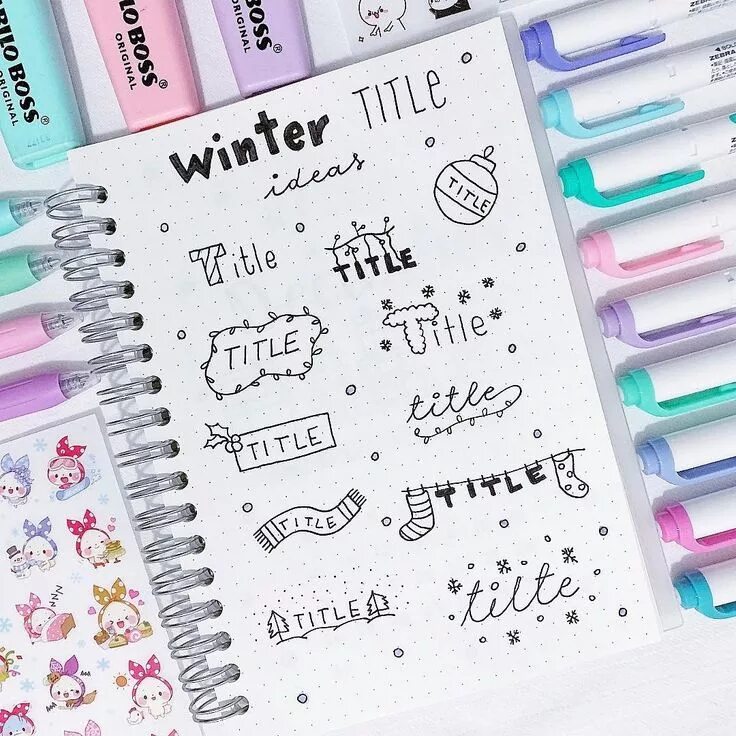 BILO BOSS
ORIGINAL
LO BOSS
ORIGINAL
BOSS
ORIGINAL
ZEBRA
ZEBRA
Winter TITLE
ideas
TITLE
Title
TITLE
TITLE
Title
TITLE
title
TITLE
TITLE
TITLE
tilte
zzz